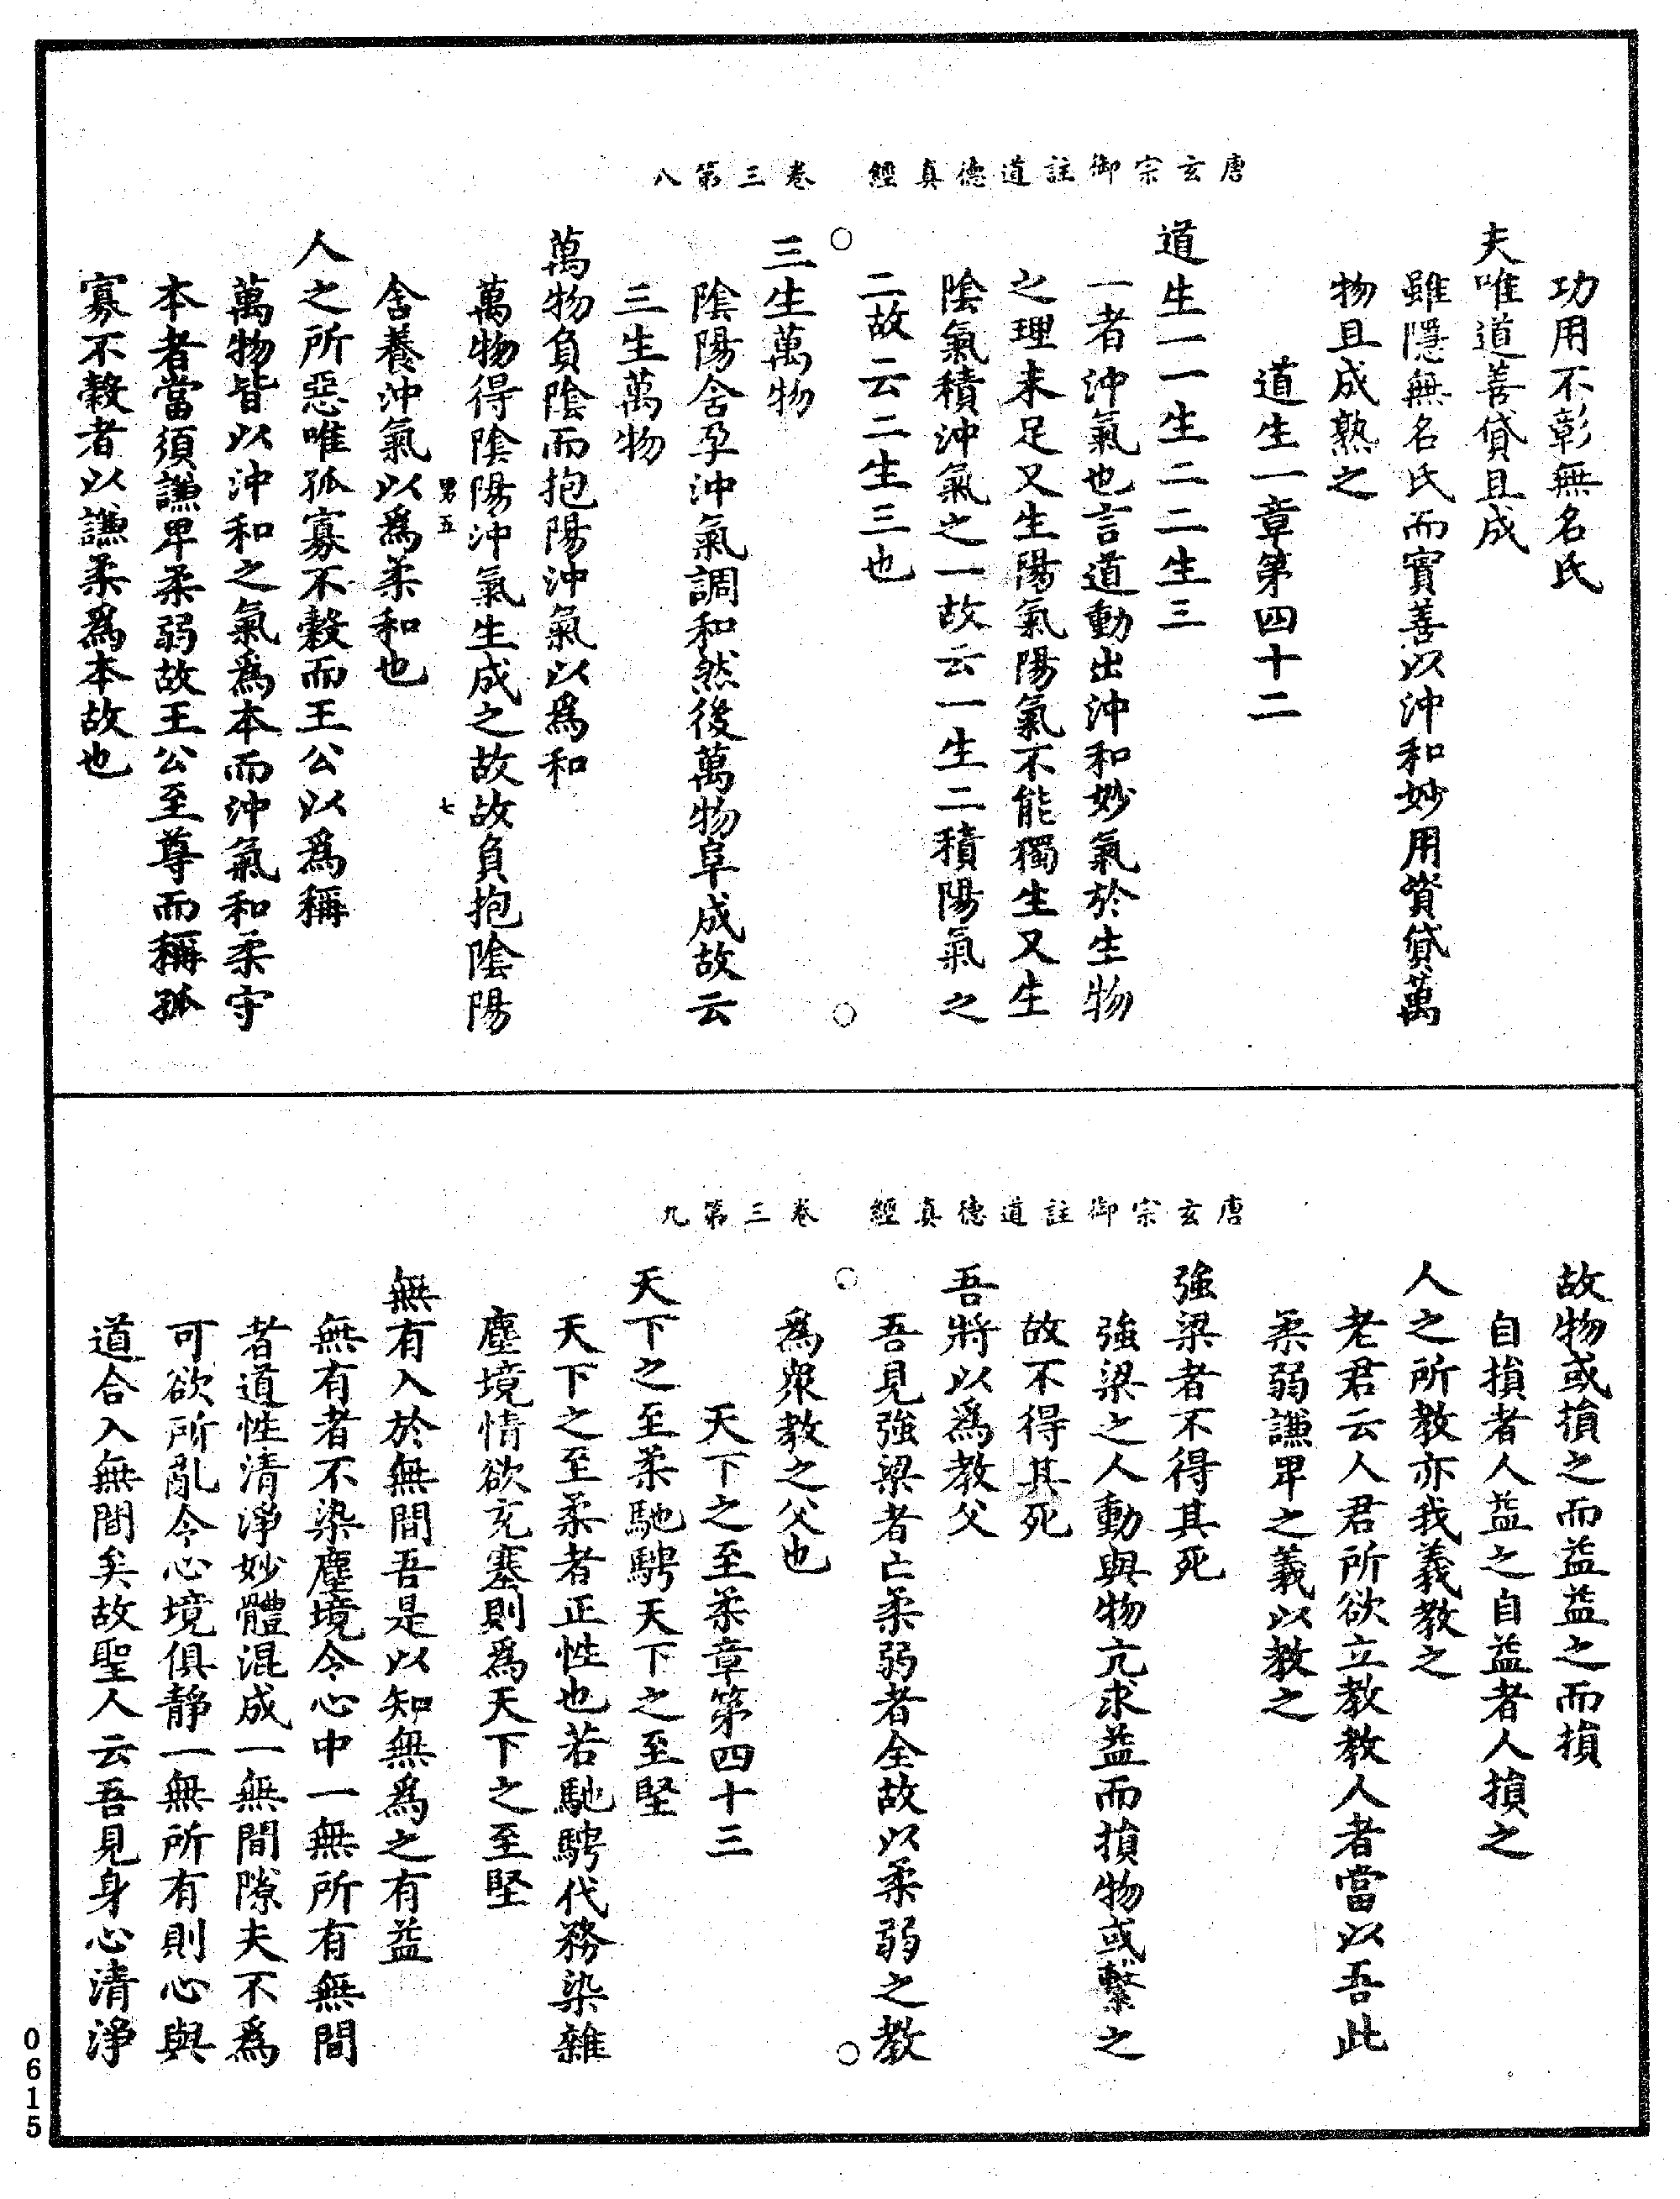 唐玄宗御註道德真經　卷三第八
功用不彰無名氏
夫唯道善貸且成
雖隱無名氏而實善以沖和妙用資貸萬
物且成熟之
道生一章第四十二
道生一一生二二生三
一者沖氣也言道動出沖和妙氣於生物
之理未足又生陽氣陽氣不能獨生又生
陰氣積沖氣之一故云一生二積陽氣之
二故云二生三也
三生萬物
陰陽含孕沖氣調和然後萬物阜成故云
三生萬物
萬物負陰而抱陽沖氣以為和
萬物得陰陽沖氣生成之故故負抱陰陽
男五　七
含養沖氣以為柔和也
人之所惡唯孤寡不穀而王公以為稱
萬物皆以沖和之氣為本而沖氣和柔守
本者當須謙卑柔弱故王公至尊而稱孤
寡不穀者以謙柔為本故也
唐玄宗御註道德真經　卷三第九
故物或損之而益益之而損
自損者人益之自益者人損之
人之所教亦我義教之
老君云人君所欲立教教人者當以吾此
柔弱謙卑之義以教之
強梁者不得其死
強梁之人動與物亢求益而損物或繫之
故不得其死
吾將以為教父
吾見強梁者亡柔弱者全故以柔弱之教
為眾教之父也
天下之至柔章第四十三
天下之至柔馳騁天下之至堅
天下之至柔者正性也若馳騁代務染雜
塵境情欲充塞則為天下之至堅
無有入於無間吾是以知無為之有益
無有者不染塵境令心中一無所有無間
者道性清淨妙體混成一無間隙夫不為
可欲所亂令心境俱靜一無所有則心與
道合入無間矣故聖人云吾見身心清淨
0615